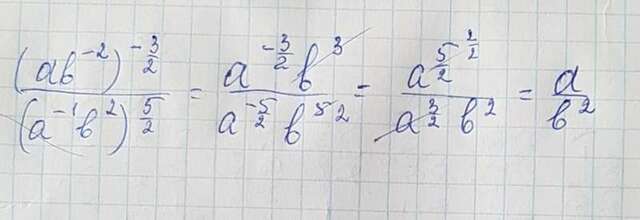 (ab⁻²)^(-3/2) / (a⁻¹b²)^(5/2) = a^(-3/2) b³ / a^(-5/2) b⁵ ² = a^(5/2) ^(2/2) / a^(3/2) b² = a / b²